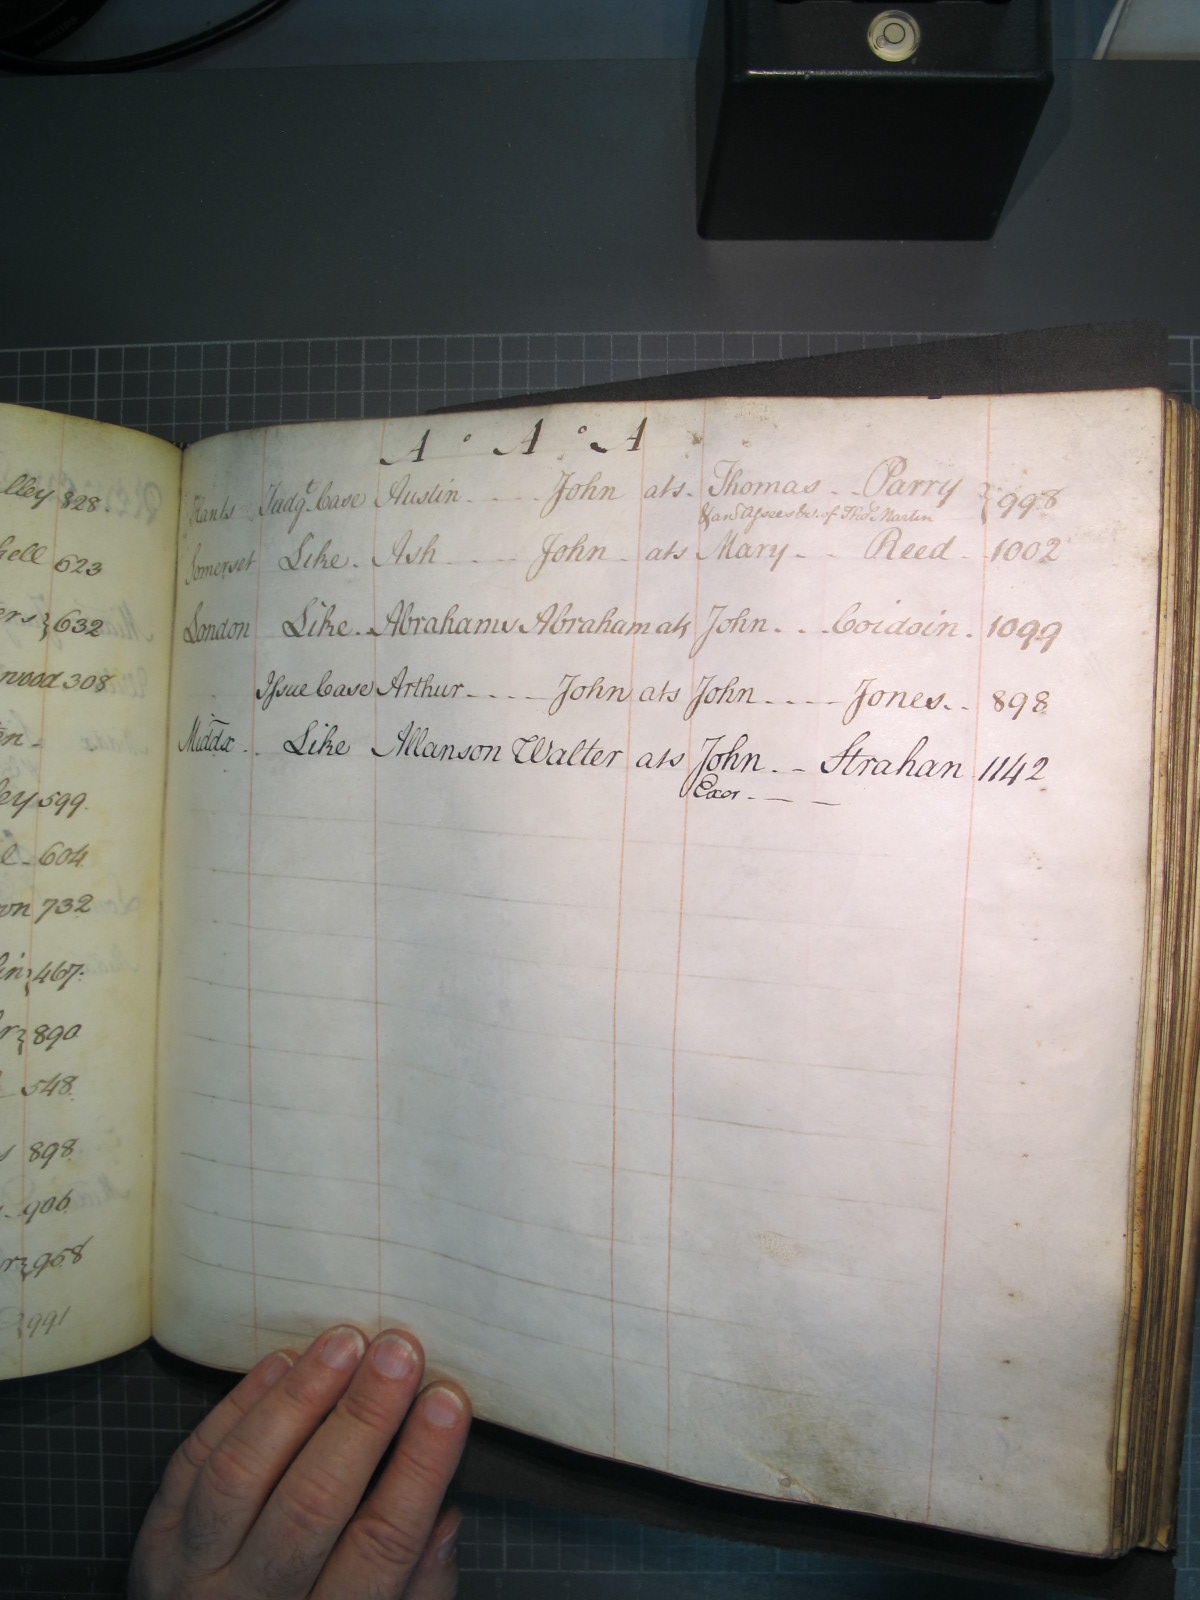 lley 828
hell 623
ers 632
nwood 308
en -
ey 599
e - 604
on 732
in 467
r 890
548
s 898
906
r 968
991
A ° A ° A
Hants Judgt. Case Austin - - - - John ats. Thomas - - Parry 998
& anr. Assees &c. of Thos. Martin
Somerset Like. Ash - - - - John ats Mary - - Reed - 1002
London Like. Abrahams Abraham ats John - - - 1099
Issue Case Arthur - - - - John ats John - - - - Jones - - 898
Middx. Like Allanson Walter ats John - - Strahan 1142
Exor - - -